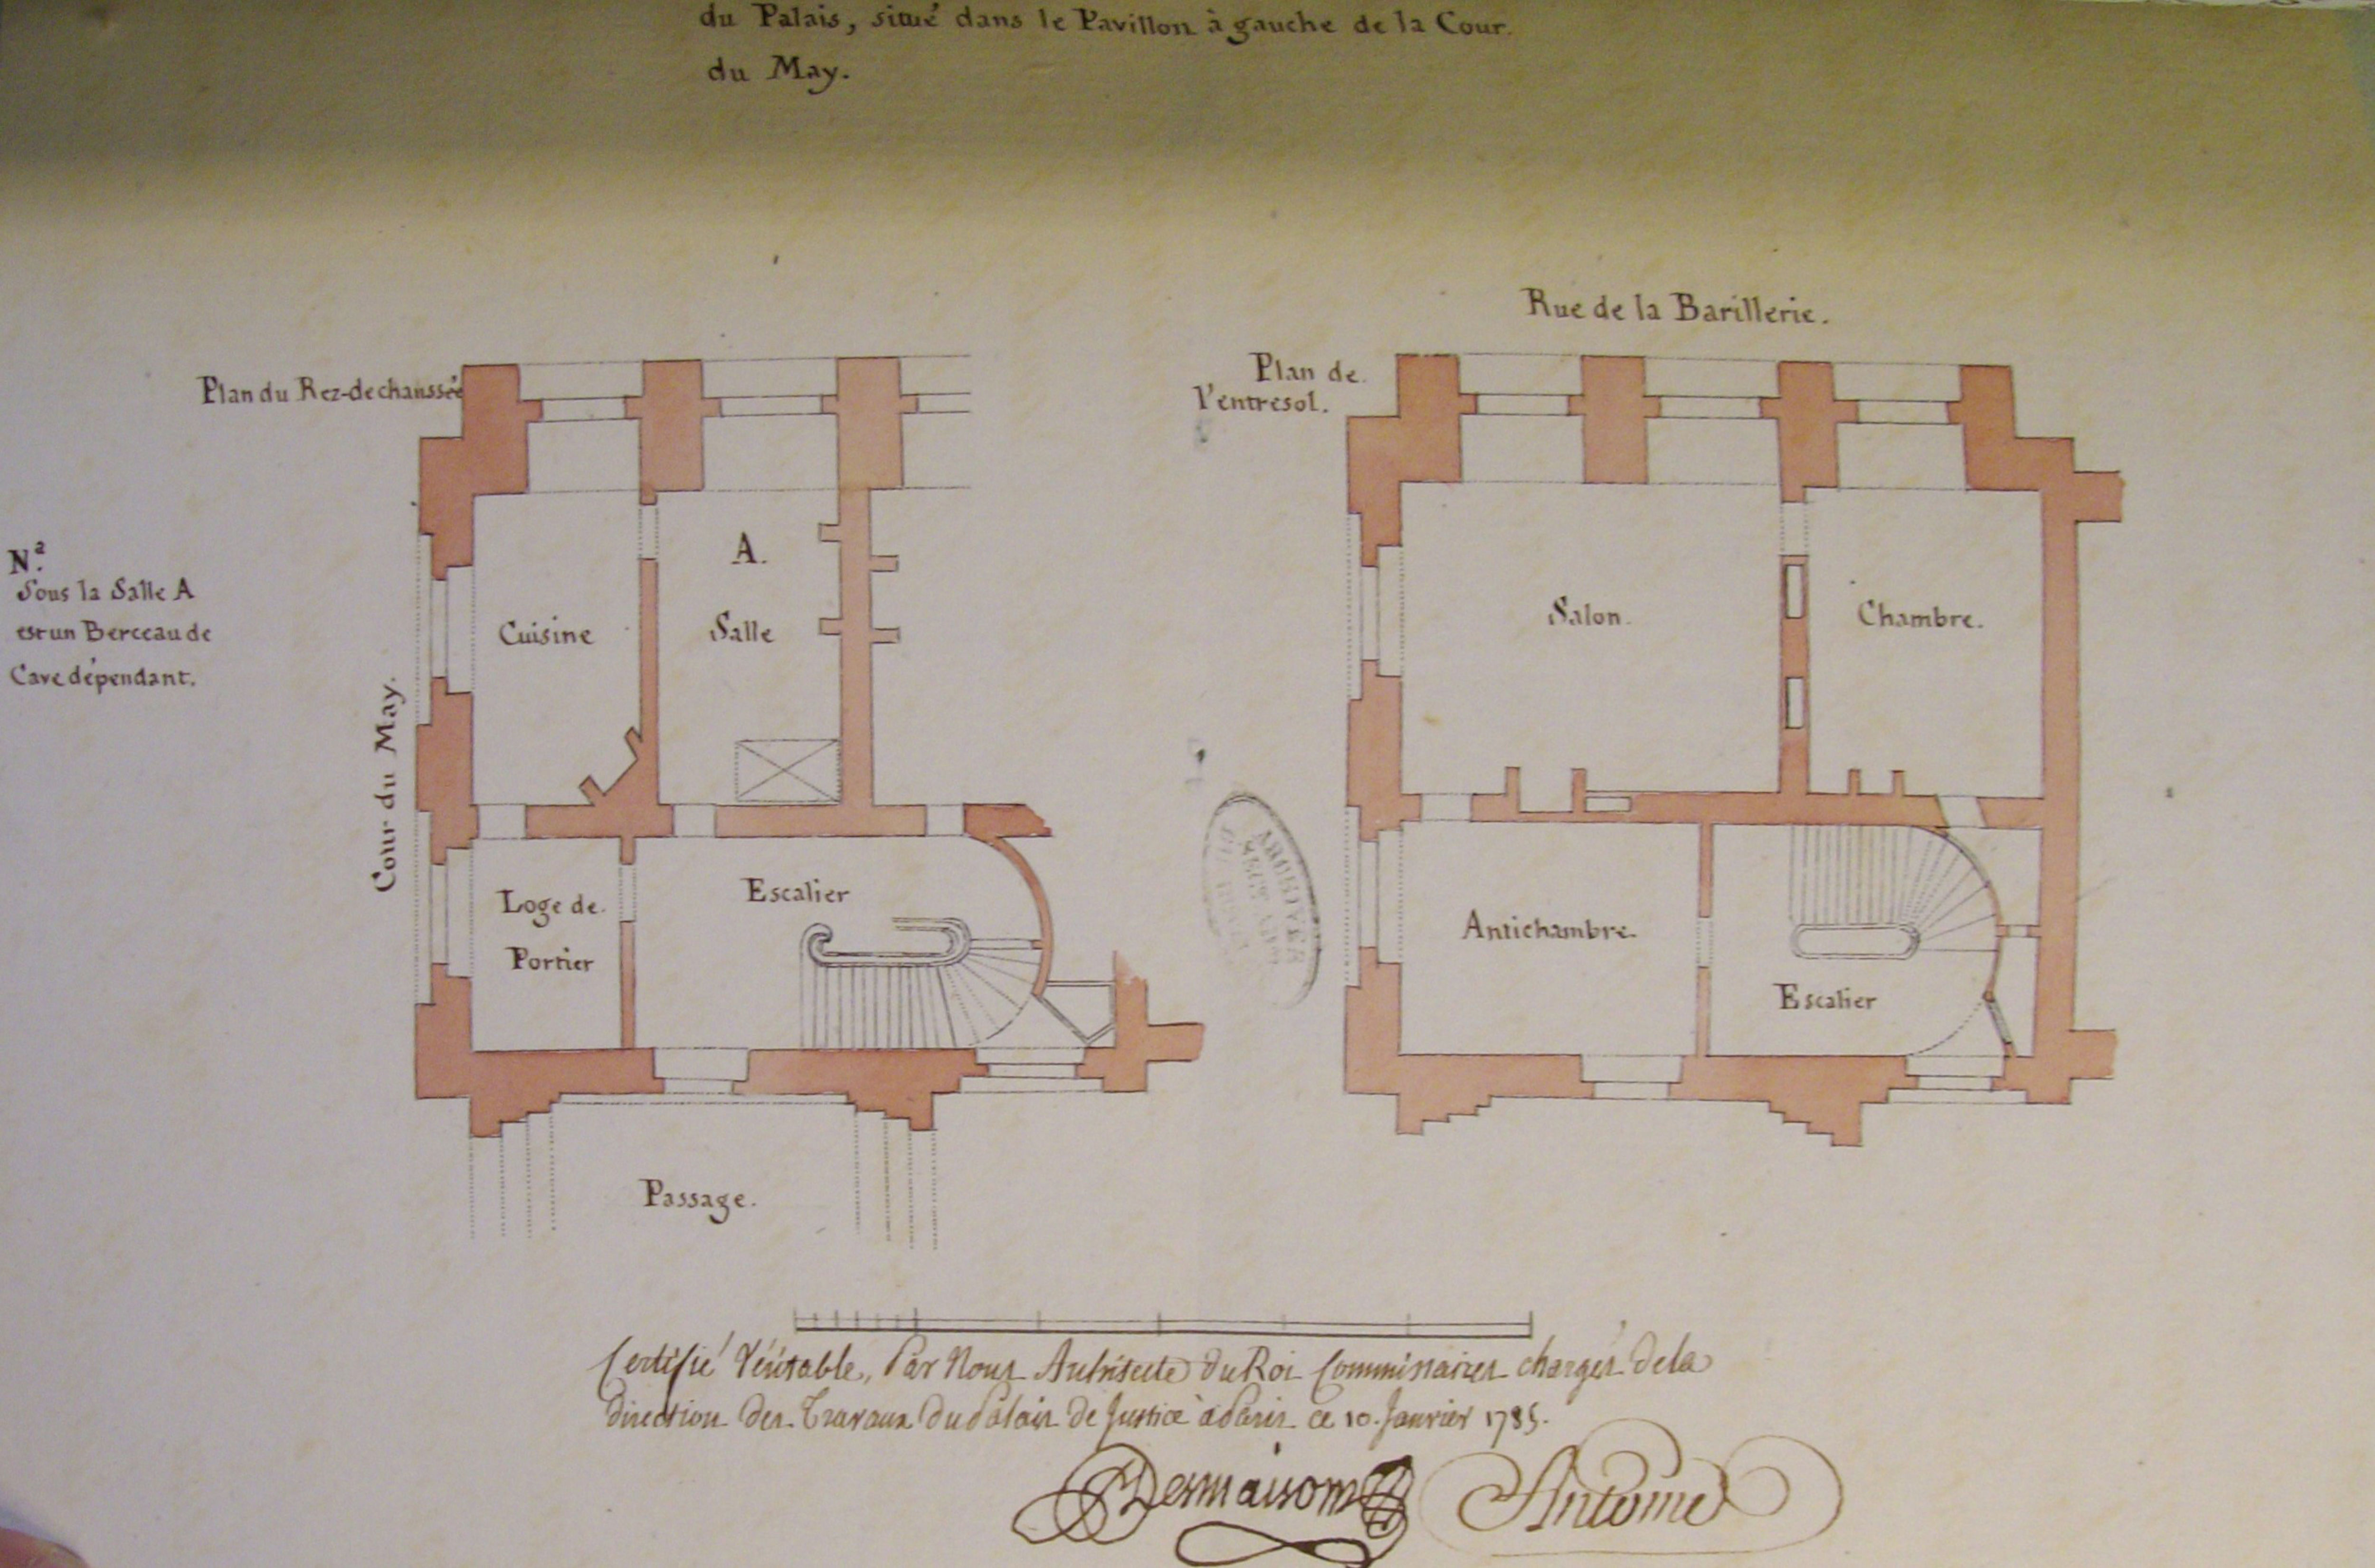 du Palais, situé dans le Pavillon à gauche de la Cour.
du May.
Rue de la Barillerie.
Plan du Rez-de chaussée
Plan de
l'entresol.
Nª.
Sous la Salle A
est un Berceau de
Cave dépendant.
Cour du May.
A.
Cuisine
Salle
Salon.
Chambre.
Loge de
Portier
Escalier
Antichambre.
Escalier
Passage.
ARCHIVES
Certifié Véritable, Par Nous Architecte Du Roi Commissaires chargés De la
direction Des Travaux Du Palais De Justice à Paris ce 10. Janvier 1785.
Desmaisons
Antoine